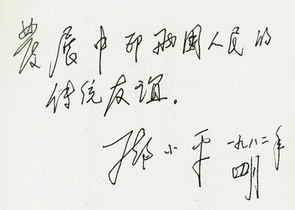 發展中印两国人民的
传统友谊。
邓小平 一九八二年
四月